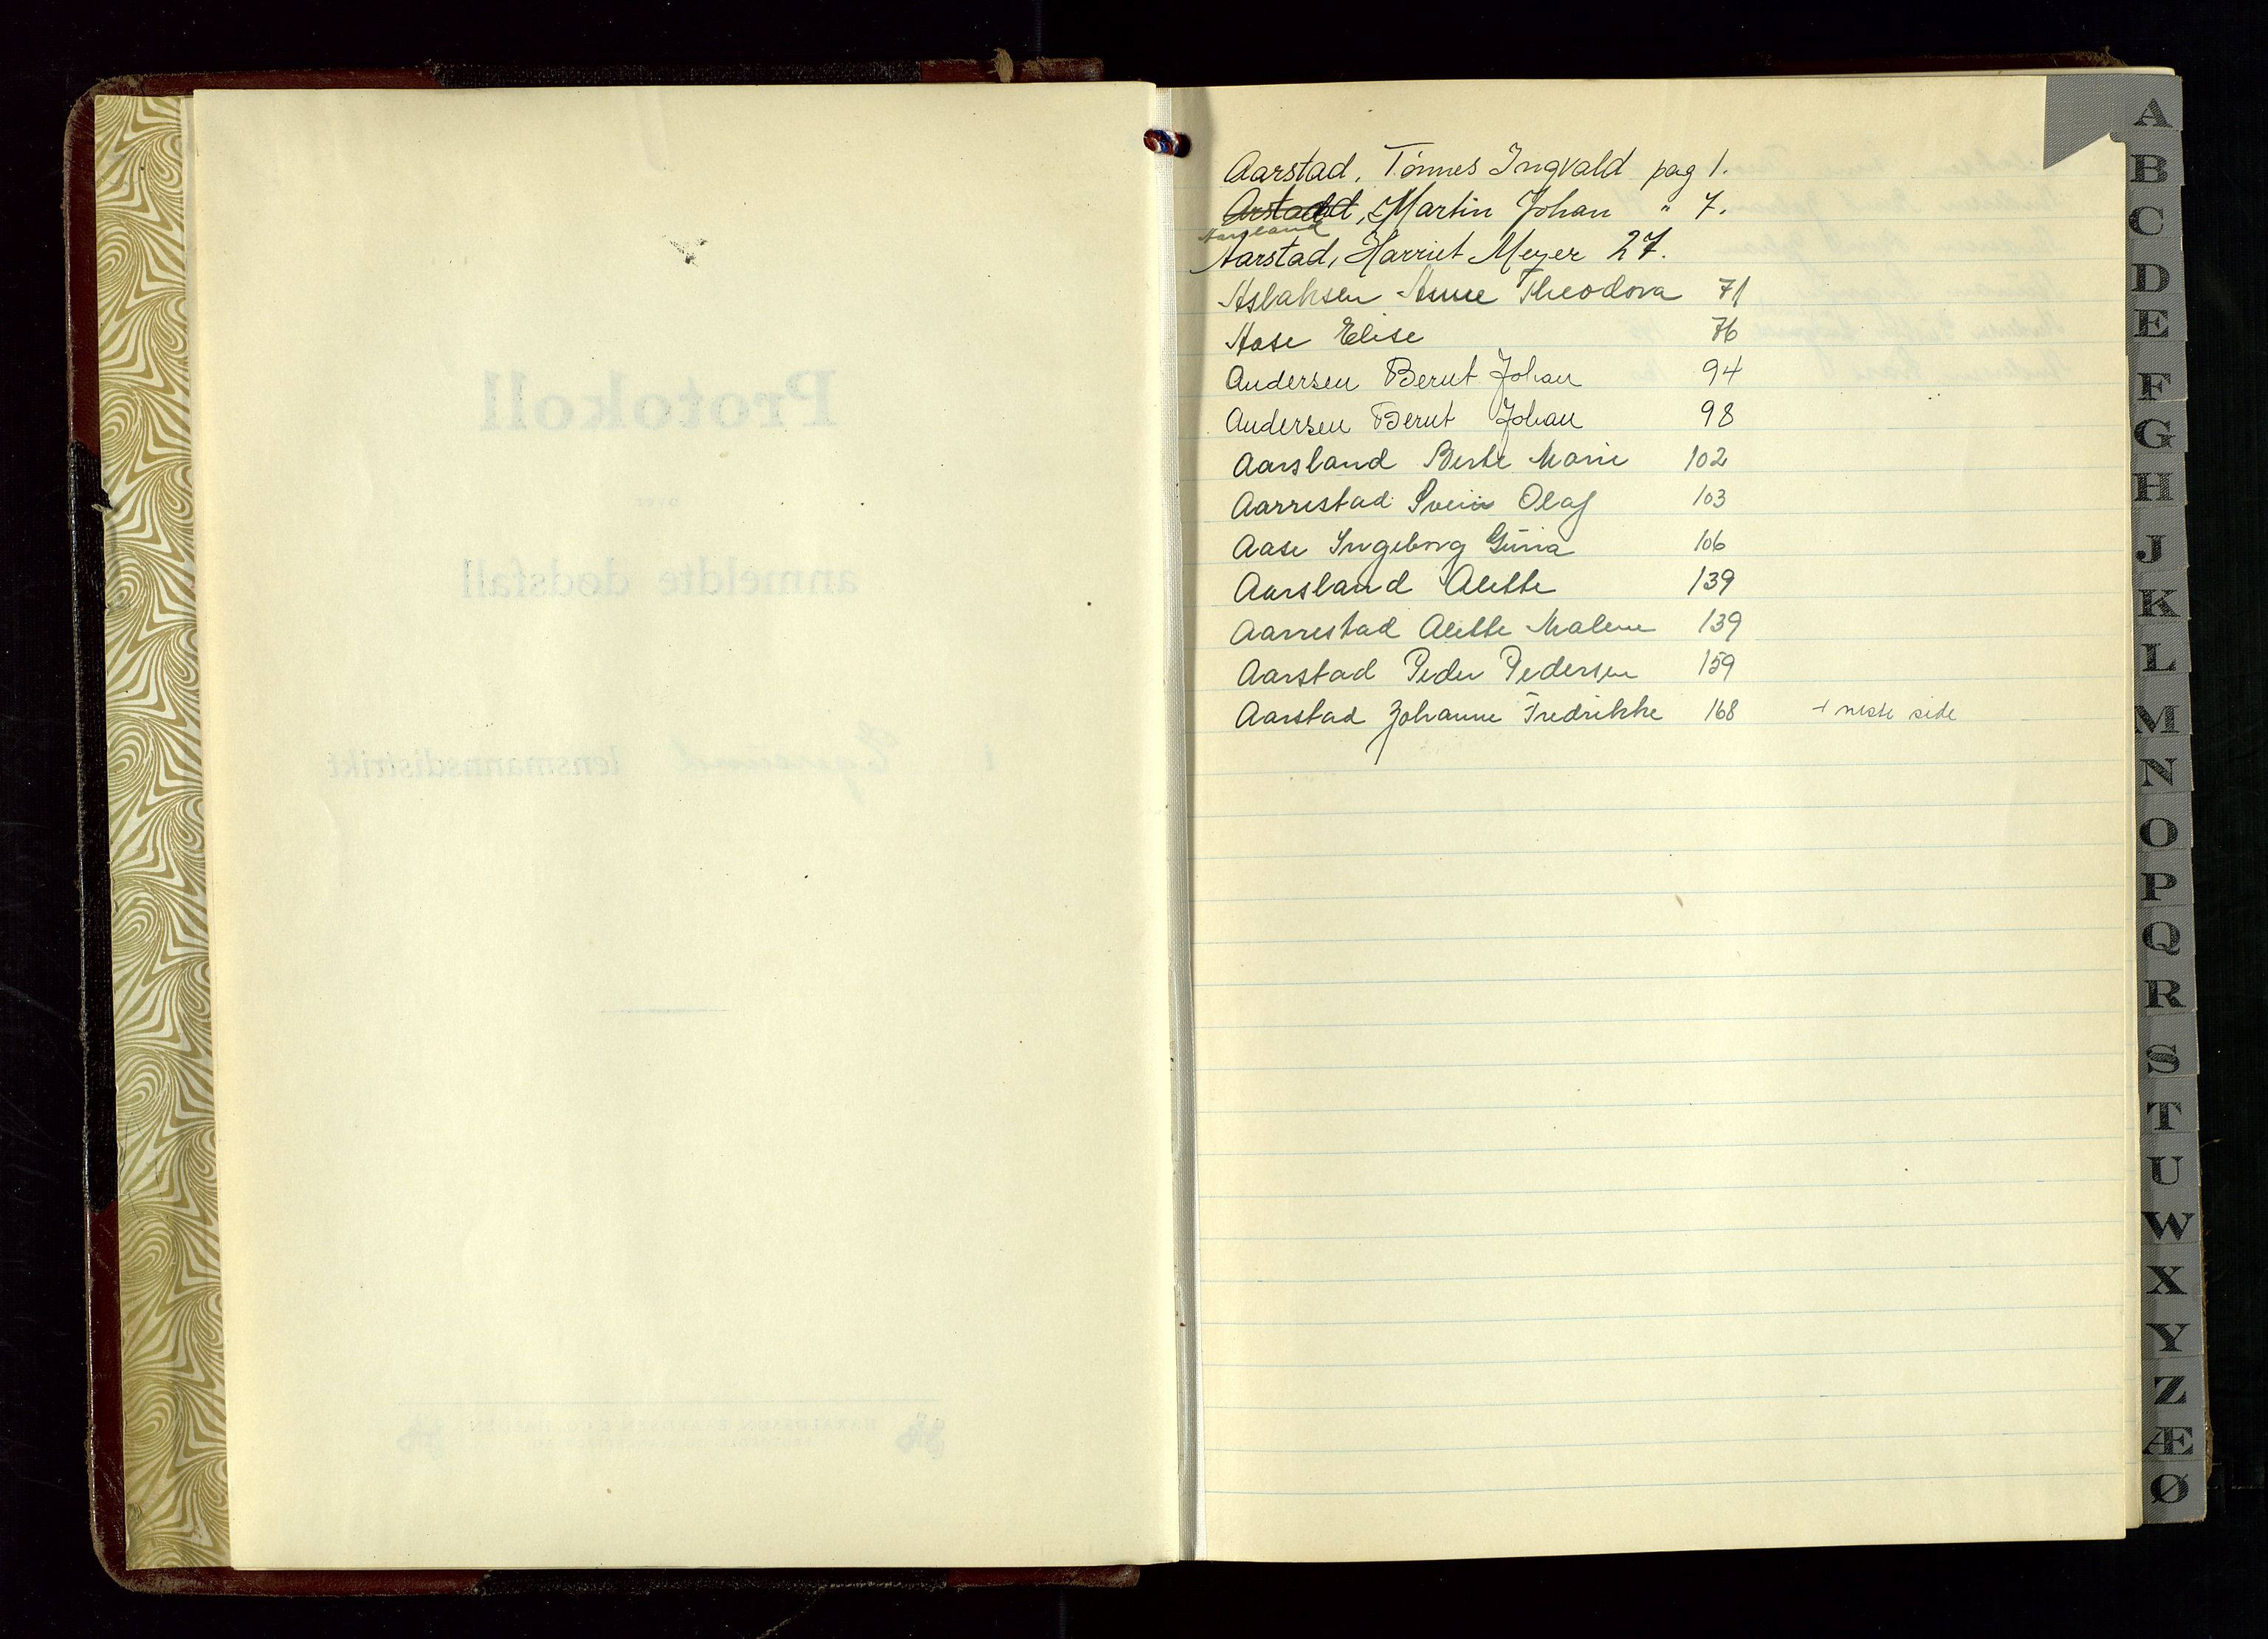 Protokoll
over
anmeldte dødsfall
i Egersund lensmannsdistrikt
Aarstad, Tønnes Ingvald pag 1.
Arstad, Martin Johan " 7.
Aarsland
Aarstad, Harriet Meyer 27.
Aslaksen Anne Theodora 71
Aase Elise 76
Andersen Bernt Johan 94
Andersen Bernt Johan 98
Aarsland Berte Marie 102
Aarrestad Svein Olaf 103
Aase Ingeborg Guna 106
Aarsland Alette 139
Aarrestad Alette Malene 139
Aarstad Peder Pedersen 159
Aarstad Johanne Fredrikke 168 + neste side
A
B
C
D
E
F
G
H
J
K
L
M
N
O
P
Q
R
S
T
U
W
X
Y
Z
Æ
Ø